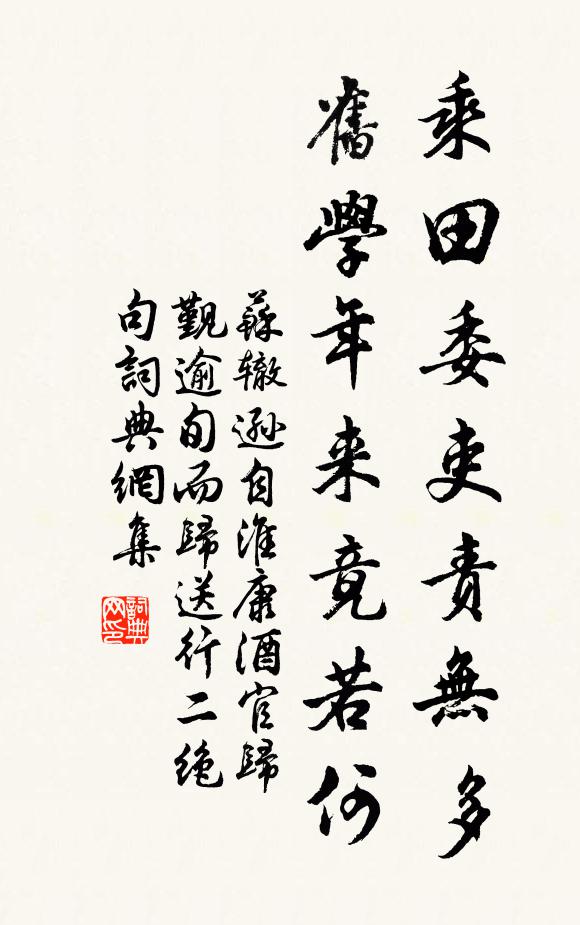 乘田委吏責無多
舊學年来竟若何
蘇辙遜自淮康酒官歸
觐逾旬而歸送行二绝
句詞典網集
詞典
网印